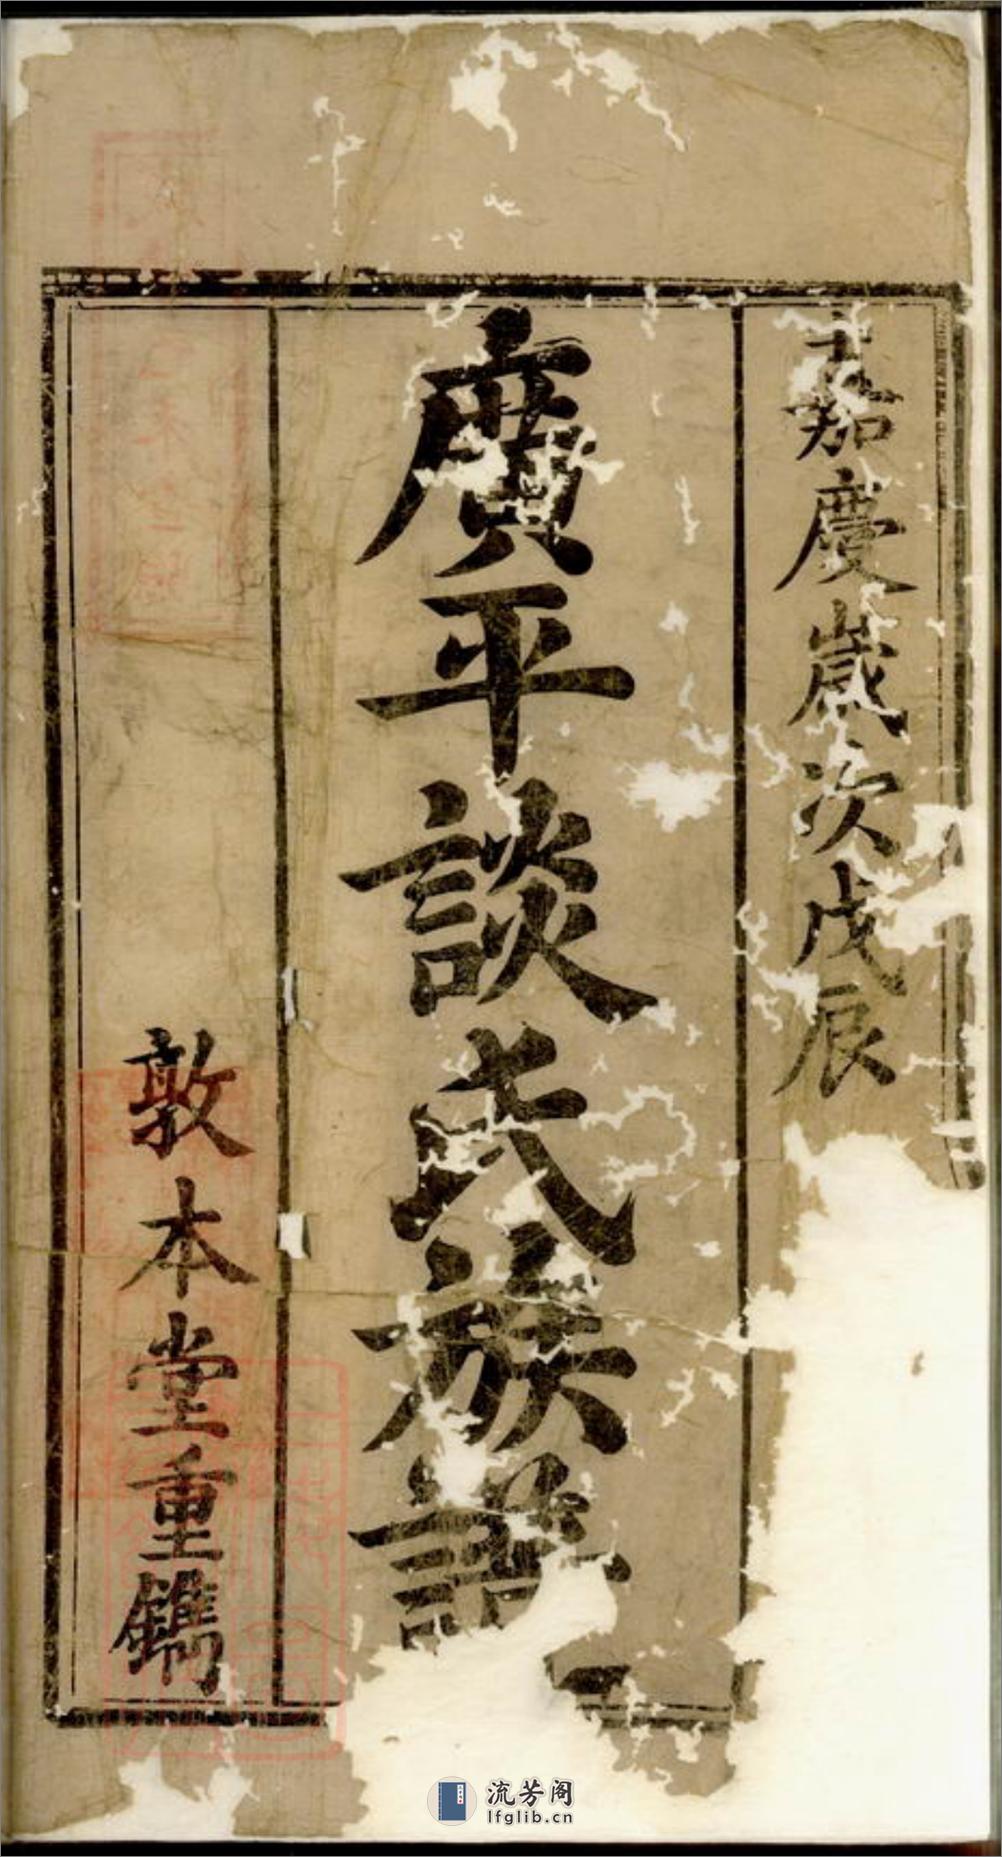 嘉慶歲次戊辰
廣平談氏族譜
敦本堂重鐫
流芳阁
lfglib.cn